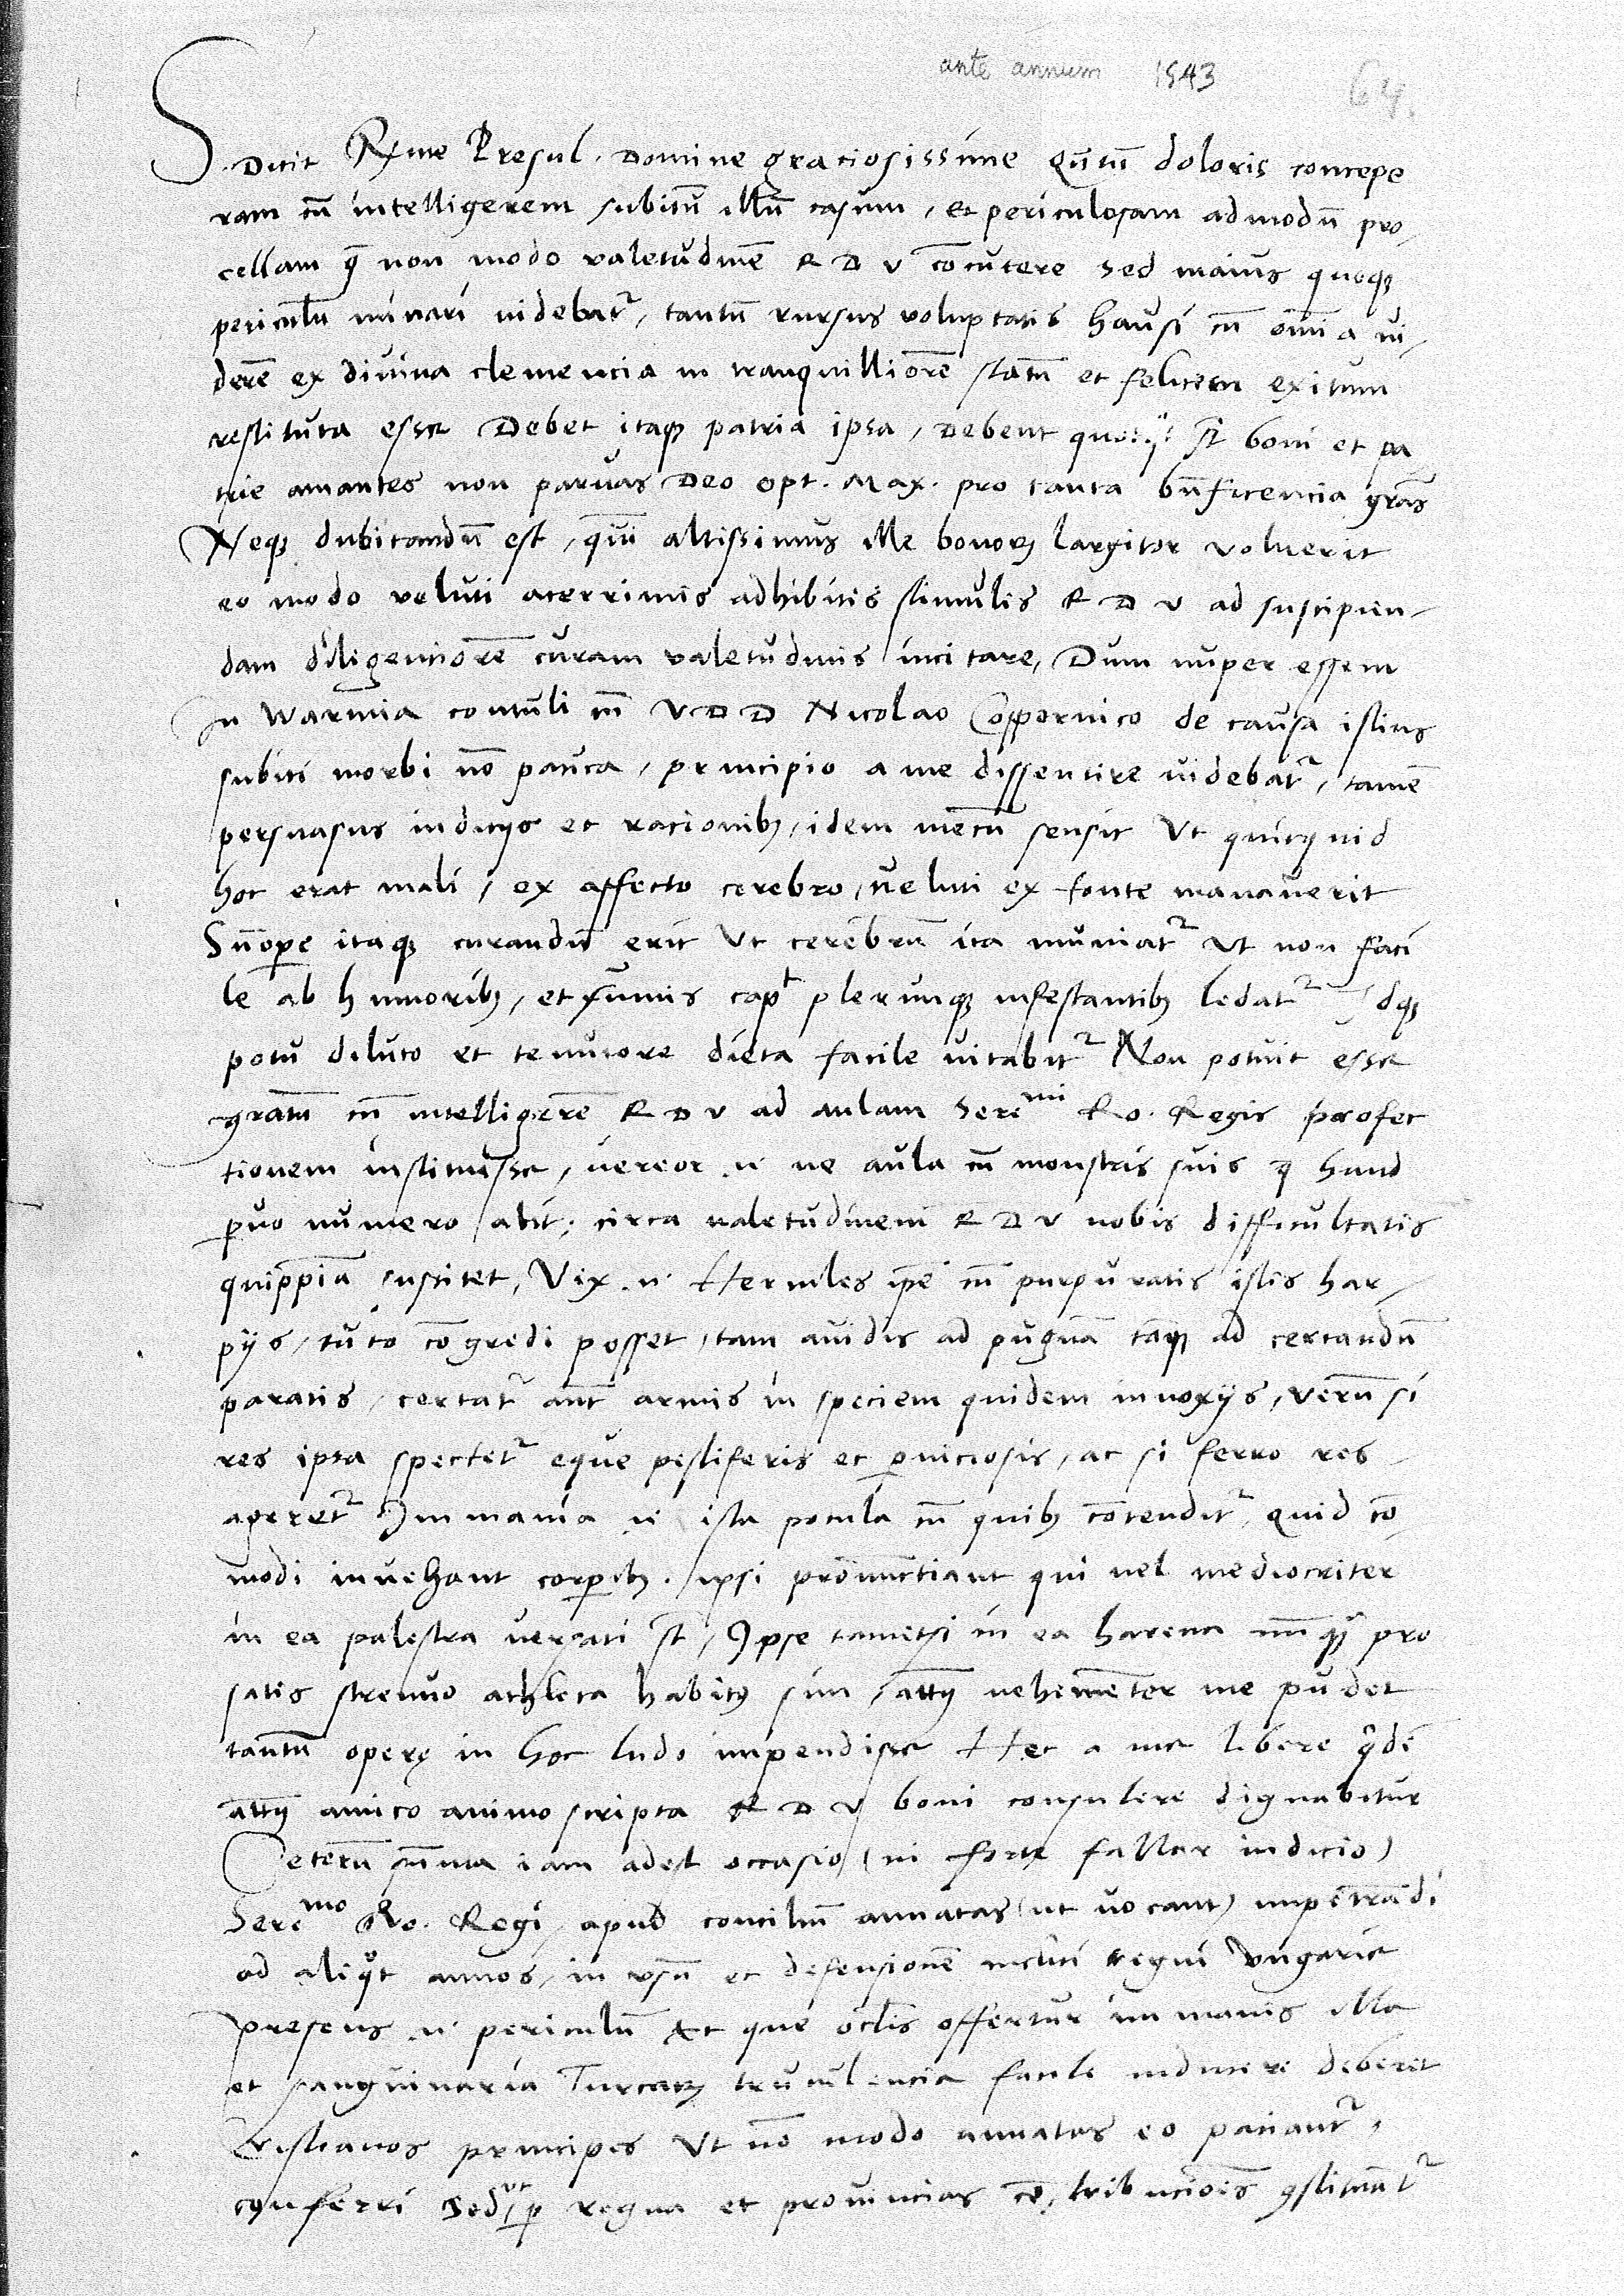 ante annum 1543
64.
S. Dicit Rx̅me Presul. Domine graciosissime Qu̅tu̅ doloris concepe
ram cu̅ intelligerem subitu̅ illu̅ casum, et periculosam admodu̅ pro-
cellam q̨ non modo valetudine̅ R D V co̅cutere sed maius quoq̨
periculu̅ minari videbat᷑, tantu̅ rursus voluptatis hausi cu̅ om̅ia vi-
dere̅ ex divina clemencia in tranquilliore̅ statu̅ et felicem exitum
restituta esse Debet itaq̨ patria ipsa, Debent quotq̨ st̅ boni et pa
trie amantes non parvas Deo opt. Max. pro tanta bn̅ficencia gra̅s
Neq̨ dubitandu̅ est, qui̅ altissimus ille bonorꝫ largitor voluerit
eo modo veluti acerrimis adhibitis stimulis R D V ad suscipien-
dam diligenciore̅ curam valetudinis incitare, Dum nuper essem
In Warmia contuli cu̅ V D D Nicolao Coppernico de causa istius
subiti morbi no̅ pauca, principio a me dissentire videbat᷑, tame̅
persuasus indicijs et racionibꝫ, idem mecu̅ sensit Ut quicquid
hoc erat mali, ex affecto cerebro, veluti ex fonte manaverit
Su̅ope itaq̨ curandu̅ erit Ut cerebru̅ ita muniat᷑ Ut non faci
le ab humoribꝫ, et fumis cap̅t plerunq̨ infestantibꝫ ledat᷑ Idq̨
potu diluto et tenuiore dieta facile vitabit᷑ Non potuit esse
gratu̅ cu̅ intelligere̅ R D V ad aulam Sere^mi Ro. Regis profec
tionem instituisse, vereor n̅ ne aula cu̅ monstris suis q̨ haud
p̱vo numero alit, circa valetudinem R D V nobis difficultatis
quippia̅ suscitet, Vix n̅ Hercules ip̅e cu̅ purpuratis istis har-
pijs, tuto co̅gredi posset, tam avidis ad pugna̅ ta̅q̨ ad certandu̅
paratis, certat᷑ aut̅ armis in speciem quidem innoxijs, veru̅ si
res ipsa spectet᷑ eque pestiferis et p̱niciosis, ac si ferro res
ageret᷑ Immania n̅ ista pocula cu̅ quibꝫ co̅tendit᷑, quid co̅
modi invehant corp̱ibꝫ. ipsi pronunctiant qui vel mediocriter
in ea palestra versati st̅, Ipse tametsi in ea harena nu̅q̨ pro
satis strenuo athleta habitꝰ sim, attn̅ veheme̅ter me pudet
tantu̅ operę in hoc ludo impendisse Hec a me libere q̨de̅
attn̅ amico animo scripta R D V boni consulere dignabitur
Ceteru̅ su̅ma iam adest occasio (ni forte fallor indicio)
Sere^mo Ro. Regi, apud conciliu̅ annatas (ut vocant) impetra̅di
ad aliq̨t annos, in vsu̅ et defensione̅ incliti regni Ungarie
presens n̅ periculu̅ et que oc̅lis offertur immanis illa
et sanguinaria Turcarꝫ truculencia facile inducere deberet
Cristianos principes Ut no̅ modo annatas eo patiant᷑,
conferri Sed ut p̱ regna et provincias co̅tribucio̅is co̅stituant᷑